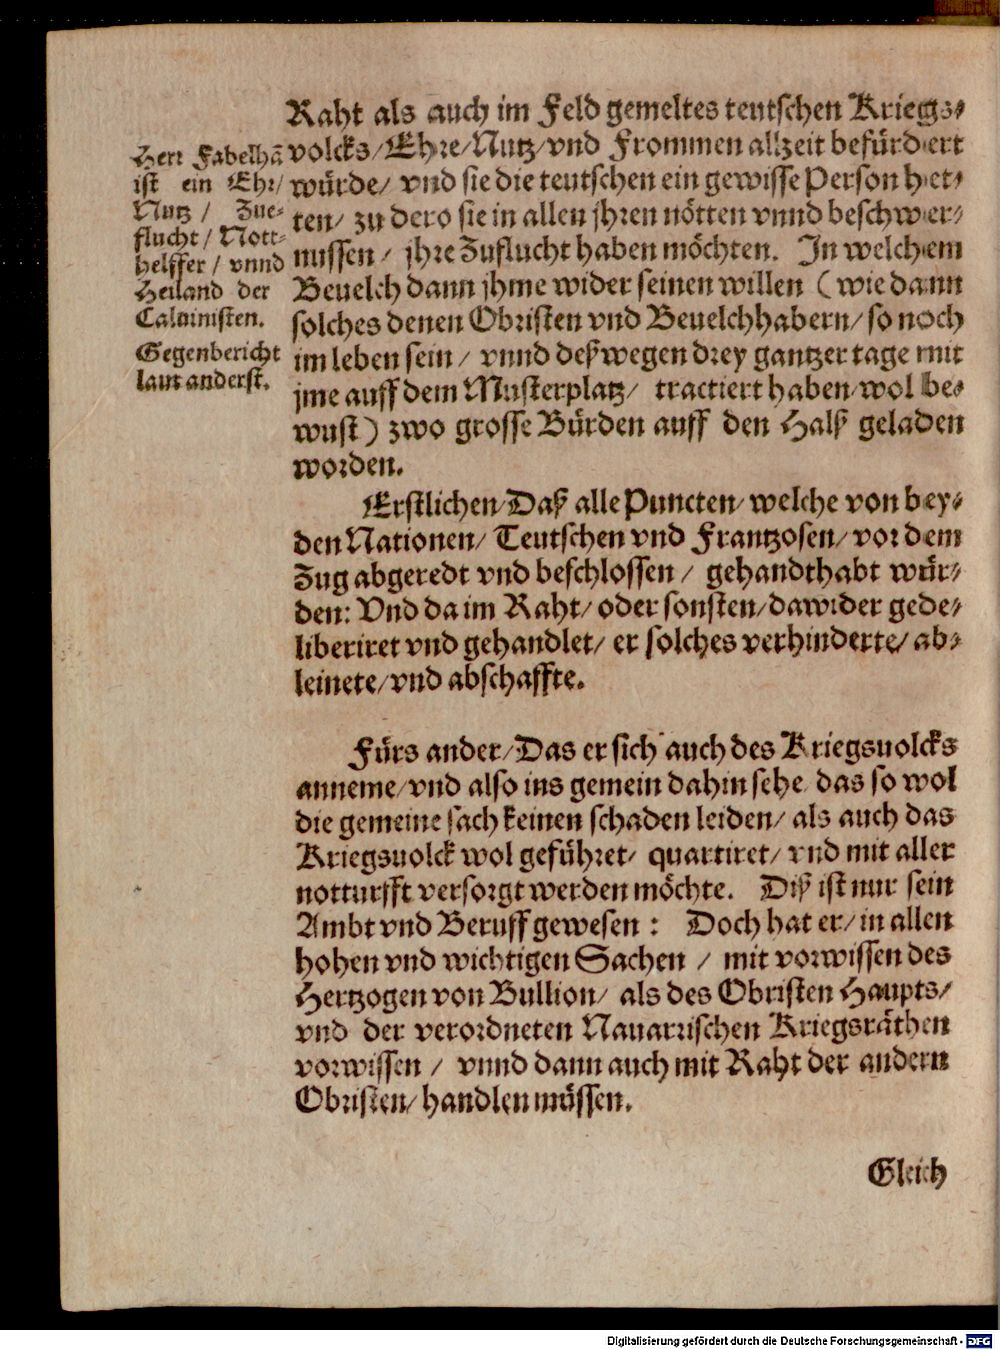 Raht als auch im Feld gemeltes teutschen Kriegs⸗
volcks/Ehre/Nutz/vnd Frommen allzeit befürdert
würde/ vnd sie die teutschen ein gewisse Person het⸗
ten/ zu dero sie in allen jhren nötten vnnd beschwer⸗
nussen/ jhre Zuflucht haben möchten. In welchem
Beuelch dann jhme wider seinen willen (wie dann
solches denen Obristen vnd Beuelchhabern/ so noch
im leben sein/ vnnd deßwegen drey gantzer tage mit
jme auff dem Musterplatz/ tractiert haben/wol be⸗
wust) zwo grosse Bürden auff den Halß geladen
worden.
Herr Fabelhã
ist ein Ehr/
Nutz/ Zue⸗
flucht/ Nott⸗
helffer/ vnnd
Heiland der
Caluinisten.
Gegenbericht
laut anderst.
Erstlichen/Daß alle Puncten/welche von bey⸗
den Nationen/ Teutschen vnd Frantzosen/ vor dem
Zug abgeredt vnd beschlossen/ gehandthabt wür⸗
den: Vnd da im Raht/ oder sonsten/dawider gede⸗
liberiret vnd gehandlet/ er solches verhinderte/ ab⸗
leinete/vnd abschaffte.
Fürs ander/Das er sich auch des Kriegsuolcks
anneme/vnd also ins gemein dahin sehe/ das so wol
die gemeine sach keinen schaden leiden/ als auch das
Kriegsuolck wol geführet/ quartiret/ vnd mit aller
notturfft versorgt werden möchte. Diß ist nur sein
Ambt vnd Beruff gewesen: Doch hat er/ in allen
hohen vnd wichtigen Sachen/ mit vorwissen des
Hertzogen von Bullion/ als des Obristen Haupts/
vnd der verordneten Nauarrischen Kriegsräthen
vorwissen/ vnnd dann auch mit Raht der andern
Obristen/ handlen müssen.
Gleich
Digitalisierung gefördert durch die Deutsche Forschungsgemeinschaft - DFG